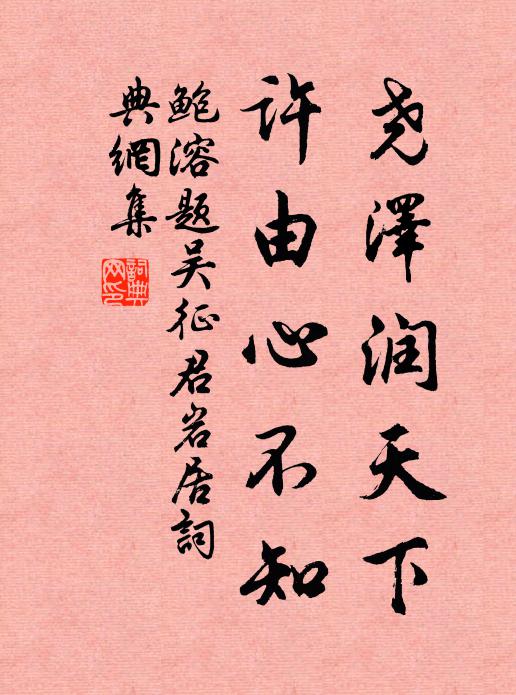 尧澤润天下
许由心不知
鲍溶题吴征君岩居詞
典網集
詞典
网印